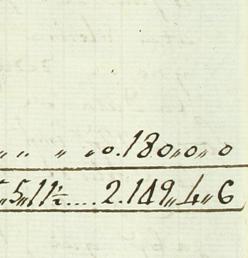 „ „ „ „ 0.180„0„ 0
„5„11½.... 2.149„4„6